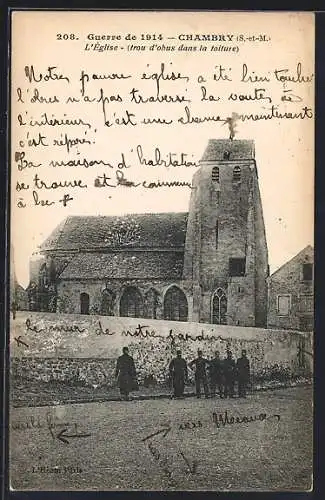 208. Guerre de 1914 — CHAMBRY (S.-et-M.)
L'Église - (trou d'obus dans la toiture)
Notre pauvre église a été bien touchée
l'obus n'a pas traversé la voute, à
l'intérieur, c'est une chance maintenant
c'est réparé.
La maison d'habitation
se trouve et commun
à le x
le mur de notre jardin
x
vers Meaux